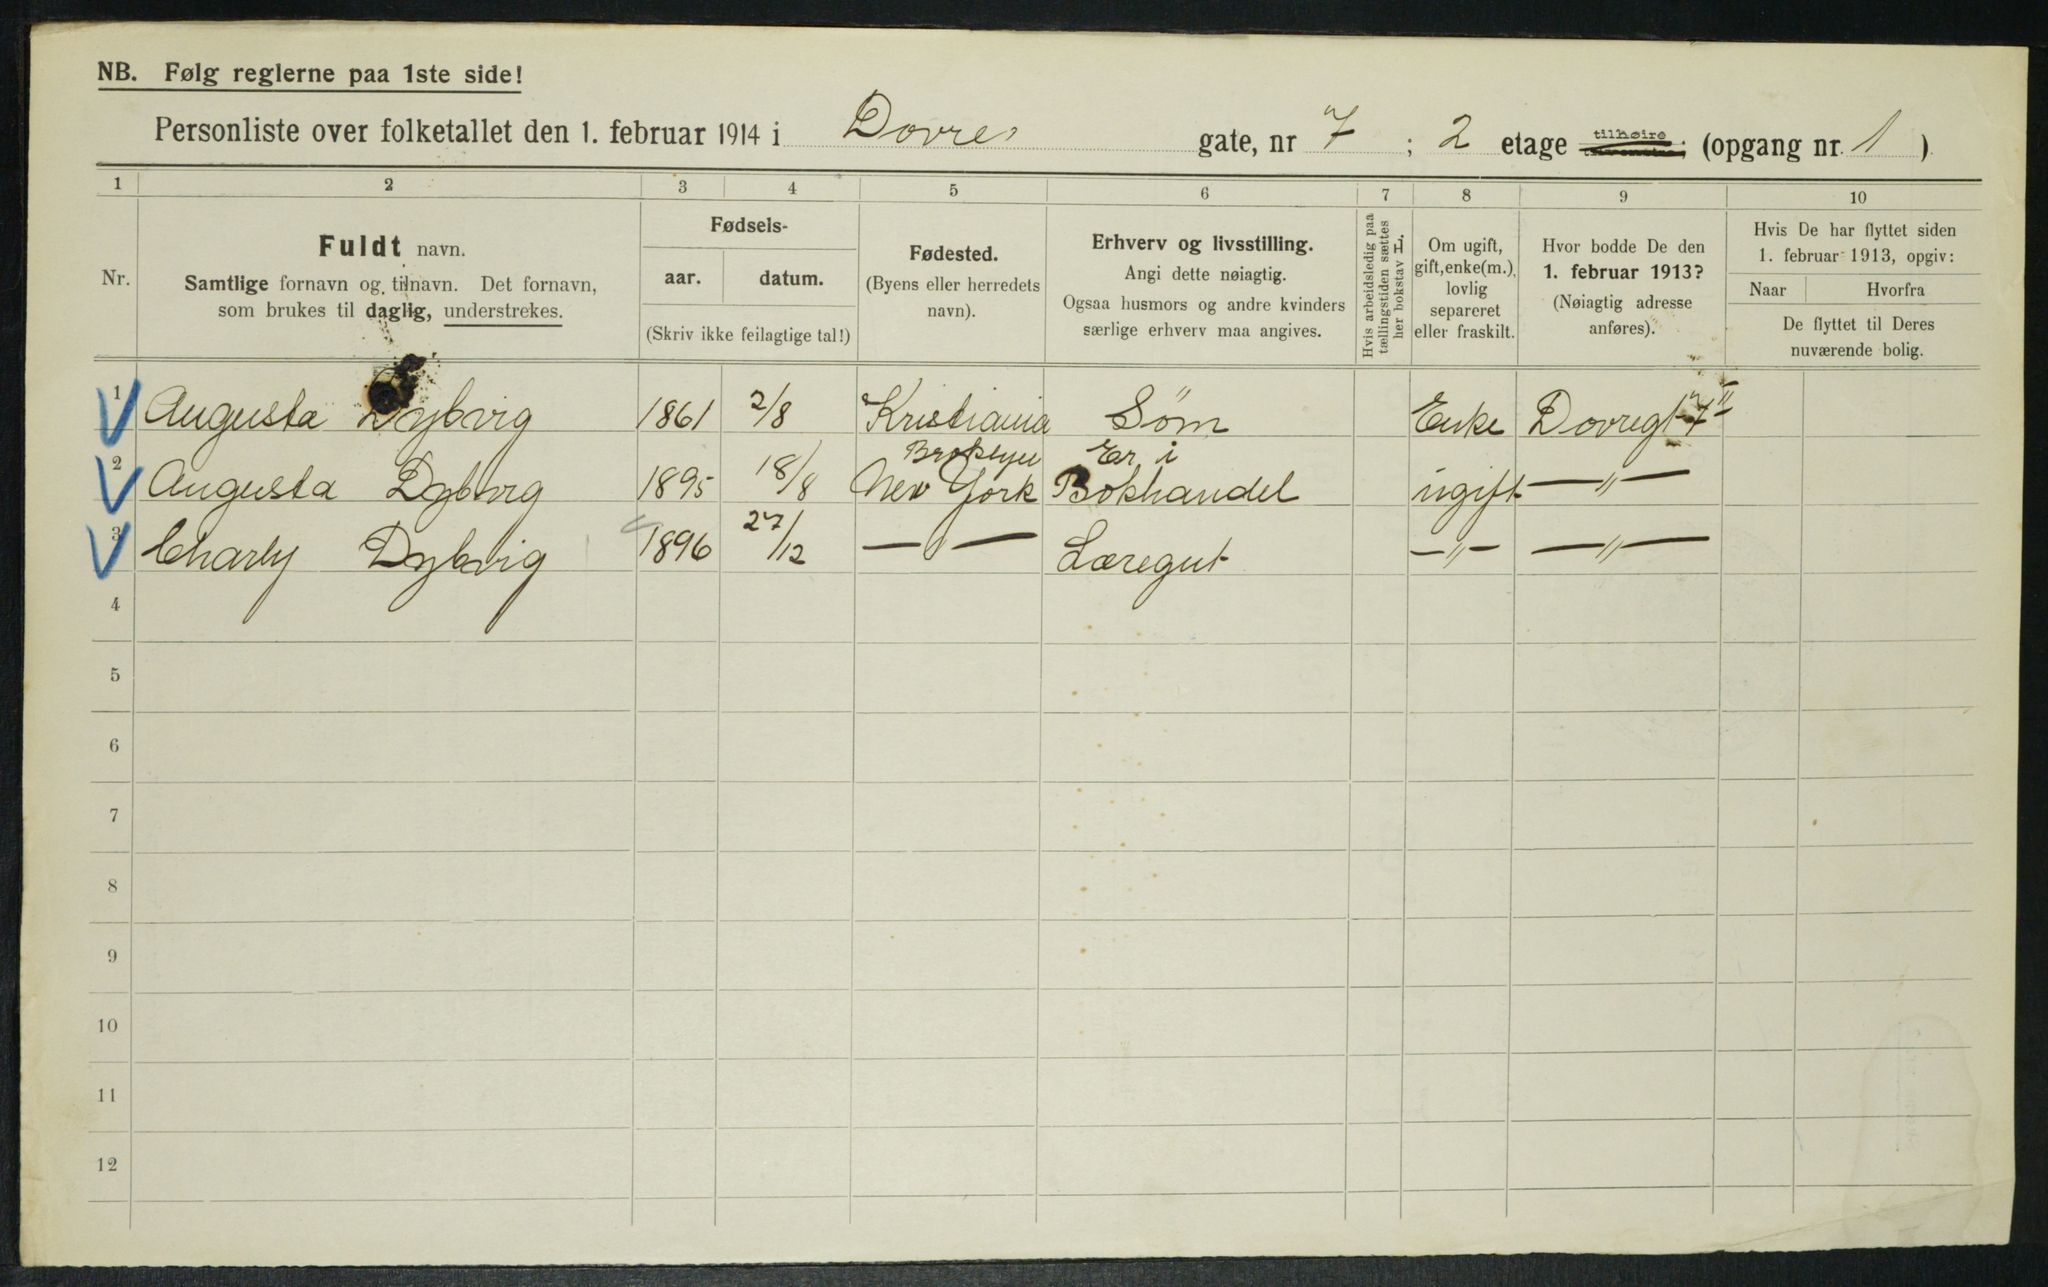 NB. Følg reglerne paa 1ste side!
Personliste over folketallet den 1. februar 1914 i Dovre gate, nr 7 ; 2 etage tilhøire (opgang nr. 1 )
1 2 3 4 5 6 7 8 9 10
Nr.
Fuldt navn.
Samtlige fornavn og tilnavn. Det fornavn,
som brukes til daglig, understrekes.
Fødsels-
aar. datum.
(Skriv ikke feilagtige tal!)
Fødested.
(Byens eller herredets
navn).
Erhverv og livsstilling.
Angi dette nøiagtig.
Ogsaa husmors og andre kvinders
særlige erhverv maa angives.
Hvis arbeidsledig paa
tællingstiden sættes
her bokstav L.
Om ugift,
gift, enke(m.),
lovlig
separeret
eller fraskilt.
Hvor bodde De den
1. februar 1913?
(Nøiagtig adresse
anføres).
Hvis De har flyttet siden
1. februar 1913, opgiv:
Naar Hvorfra
De flyttet til Deres
nuværende bolig.
1 Augusta Dybvig 1861 2/8 Kristiania Søm Enke Dovregt 7 II
Broklyn Er i
2 Augusta Dybvig 1895 18/8 New York Bokhandel ugift —"—
3 Charly Dybvig 1896 27/12 —"— Læregut —"— —"—
4
5
6
7
8
9
10
11
12